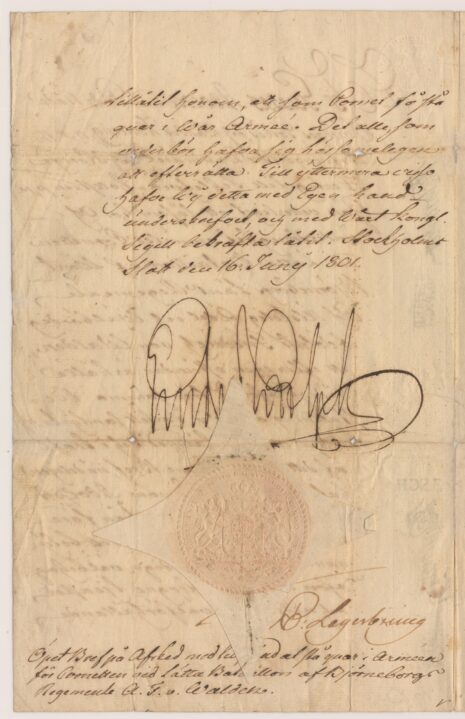 tillåtit honom, att som Cornet få stå
quar i Wår Armeé. Det alle, som
wederbör hafva sig hörsammeligen
att efterrätta. Till yttermera visso
hafve Wij detta med Egen hand
underskrifvit, och med Wårt Kongl.
Sigill bekräfta låtit. Stockholms
Slott den 16. Junij 1801.
Gustaf Adolph
P. Lagerbring
Öpet Bref på Afsked med
ad at stå quar i Armeen
för Cornetten vid Lätta Bataillon af Björneborgs
Regemente A. F. v. Walden.